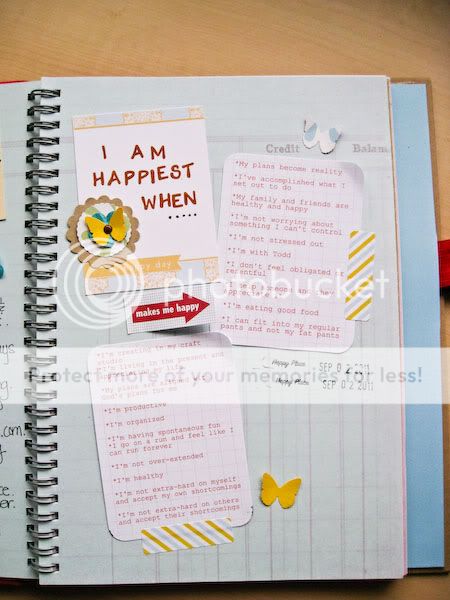 Credit
I AM
HAPPIEST
WHEN
.....
day
makes me happy
*My plans become reality
*I've accomplished what I
set out to do
*My family and friends are
healthy and happy
*I'm not worrying about
something I can't control
*I'm not stressed out
*I'm with Todd
*I don't feel obligated
resentful
*I'm eating good food
*I can fit into my regular
pants and not my fat pants
Happy Place SEP 02 2011
Happy Place SEP 02 2011
*I'm creating in my craft
*I'm living in the present and
*I'm productive
*I'm organized
*I'm having spontaneous fun
*I go on a run and feel like I
can run forever
*I'm not over-extended
*I'm healthy
*I'm not extra-hard on myself
and accept my own shortcomings
*I'm not extra-hard on others
and accept their shortcomings
photobucket
Protect more of your memories for less!